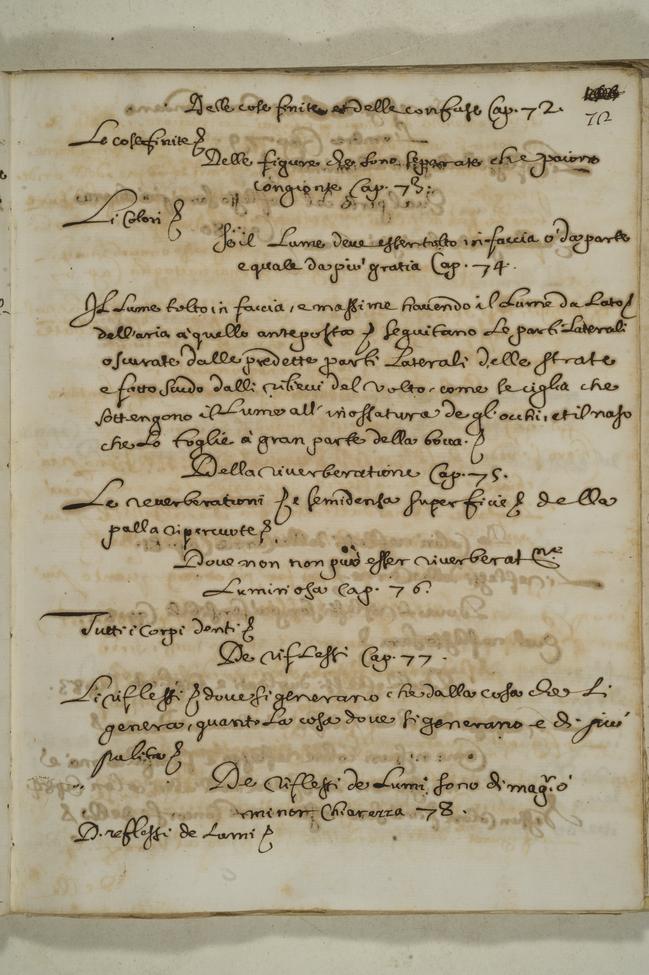 Delle cose finite et delle confuse Cap. 72.
72
Le cose finite
Delle figure che sono separate che paiono
congionte Cap. 73.
Li Colori
Se il Lume deve esser tolto in faccia ò da parte
e quale da più gratia Cap. 74.
Il Lume tolto in faccia, e massime havendo il Lume da Lato
dell'aria à quello anteposta seguitano Le parti Laterali
oscurate dalle predette parti Laterali delle strate
e fatto scudo dalli rilievi del volto, come le ciglia che
sottengono il Lume all'inossatura de gl'occhi, et il naso
che Lo toglie à gran parte della bocca.
Della riverberatione Cap. 75.
Le reverberationi e semidensa superficie della
palla ripercuote
Dove non non può esser riverberat.ne
Luminosa Cap. 76.
Tutti i Corpi denti
De riflessi Cap. 77.
Li riflessi dove si generano che dalla cosa che Li
genera, quanto La cosa dove si generano e di più
pulita
De riflessi de Lumi, sono di mag.r ò
minor Chiarezza 78.
D. reflessi de Lumi